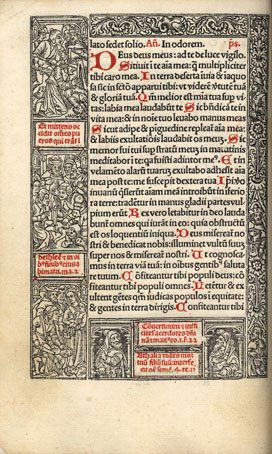 lato sedet solio. Añ. In odorem. p̄s.
DEus deus meus: ad te de luce vigilo.
Sitiuit ī te aīa mea: q̄ multipliciter
tibi caro mea. In terra deserta īuia & iaquo
sa sic in sctō apparui tibi: vt viderē v̄tutē tuā
& gloriā tuā. Qm̄ melior est mīa tua sup vi-
tas: labia mea laudabūt te Sic bn̄dicā te in
vita mea: & in noīe tuo leuabo manus meas
Sicut adipe & piguedine repleat aīa mea:
& labiis exultatiōis laudabit os meum. Sic
memor fui tui sup stratū meū, in matutinis
meditabor ī te: qa fuisti adiutor me⁹. Et in
velamēto alarū tuarū exultabo adhesit aīa
mea post te: me suscepit dextera tua Ipi vo
inuanū q̄sierūt aīam meā introibūt in īferio
ra terre: tradētur in manus gladii partes vul-
pium erūt. Rex vero letabitur in deo lauda
būnt omnes qui iurāt in eo: quia obstructū ē
os loquentiū iniqua. Deus misereat no
stri & benedicat nobis: illuminet vultū suuz
super nos & misereat nostri. Ut cognosca-
mus in terra viā tuā: in oibus gentib⁹ saluta
re tuum. Cōfiteantur tibi populi deus: cō
fiteantur tibi populi omnes. Letētur & ex
ultent gētes qm̄ iudicas populos ī equitate:
& gentes in terra dirigis. Cōfiteantur tibi
Et mittens oc
cidit oēs pu
eros qui erāt ī
bethleē & in oī
bima. m. 2.
Cōuertimini & in
fīcite sacerdotes dn̄i
Athalia videns mor
tuū filiū suū: interfe
cit oē semē. 4. re. 11